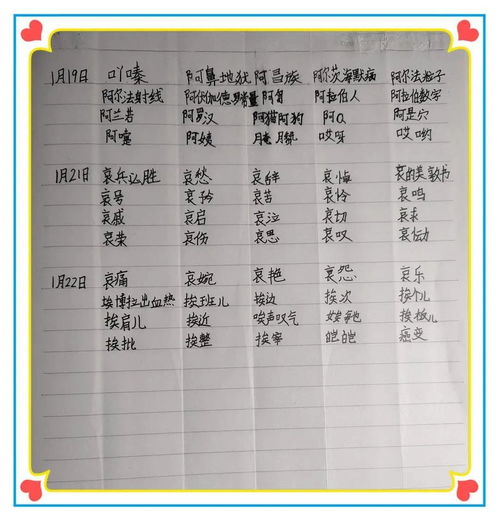 1月19日 吖嗪 阿鼻地狱 阿昌族 阿尔茨海默病 阿尔法粒子
阿尔法射线 阿伏伽德 阿拉伯人 阿拉伯数字
阿兰若 阿罗汉 阿猫阿狗 阿Q 阿是穴
阿嚏 阿姨 哎呀 哎哟
1月21日 哀兵必胜 哀愁 哀悼 哀的美敦书
哀号 哀矜 哀苦 哀怜 哀鸣
哀戚 哀启 哀泣 哀切 哀求
哀荣 哀伤 哀思 哀叹 哀恸
1月22日 哀痛 哀婉 哀艳 哀怨 哀乐
埃博拉出血热 挨班儿 挨边 挨次 挨个儿
挨肩儿 挨近 唉声叹气
挨批 挨整 挨宰 皑皑 癌变